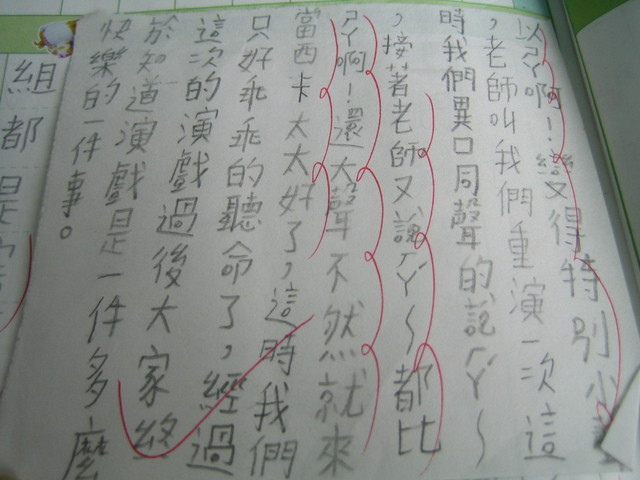 變得特別小聲
,老師叫我們重演一次這
時我們異口同聲的說ㄏㄚˊ~
,接著老師又說ㄏㄚˊ~都比
ㄕㄚ啊!還大聲不然就來
當西卡太太好了,這時我們
只好乖乖的聽命了,經過
這次的演戲過後大家終
於知道演戲是一件多麼
快樂的一件事。
組都是